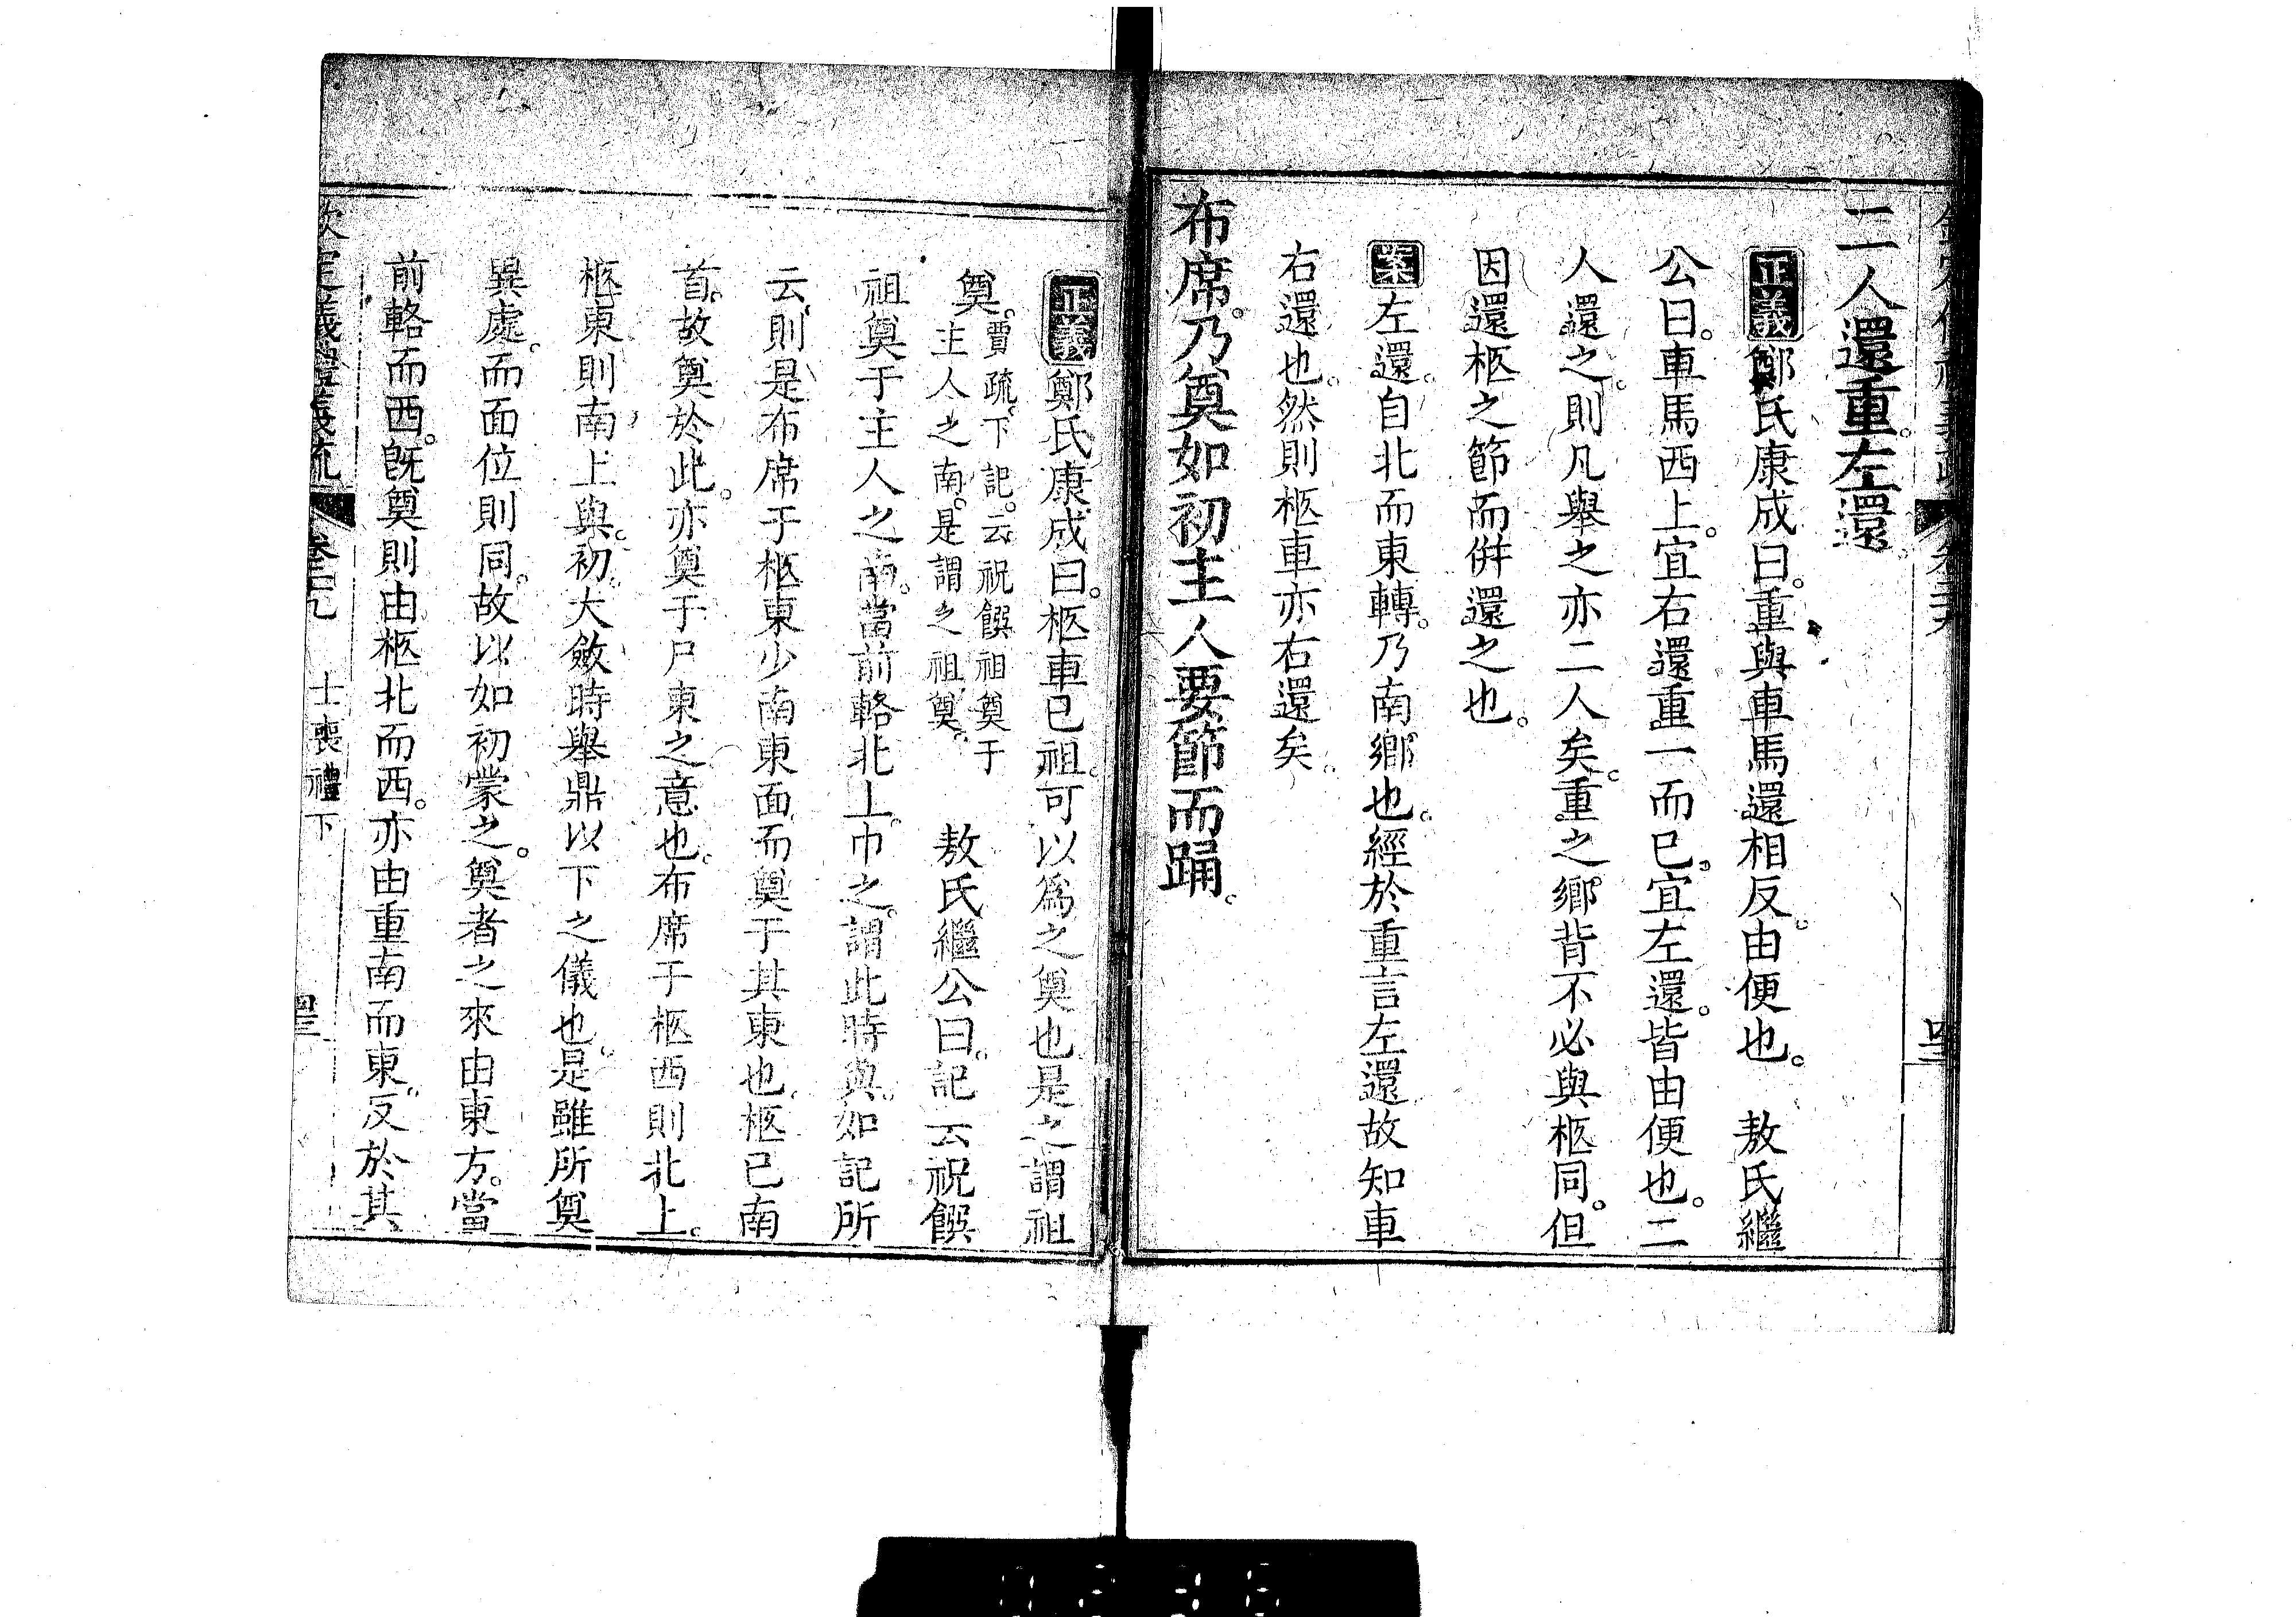 二人還重左還。
正義鄭氏康成曰。重與車馬還相反。由便也。　敖氏繼
公曰。車馬西上。宜右還重一而已。宜左還。皆由便也。二
人還之。則凡舉之亦二人矣。重之鄉背不必與柩同。但
因還柩之節而併還之也。
案左還。自北而東轉。乃南鄉也。經於重言左還故知車
右還也。然則柩車亦右還矣。
布席。乃奠如初主人要節而踊。
正義鄭氏康成曰。柩車已祖。可以為之奠也是之謂祖
奠。賈疏。下記。云祝饌祖奠于主人之南。是謂之祖奠。　敖氏繼公曰。記云祝饌
祖奠于主人之南。當前輅北上。巾之。謂此時與。如記所
云。則是布席于柩東少南東面而奠于其東也。柩已南
首。故奠於此。亦奠于尸東之意也。布席于柩西則北上。
柩東則南上與。初。大斂時舉鼎以下之儀也。是雖所奠
異處。而面位則同。故以如初蒙之。奠者之來由東方。當
前輅而西。既奠則由柩北而西。亦由重南而東。反於其
欽定儀禮義疏　卷二十九　士喪禮下